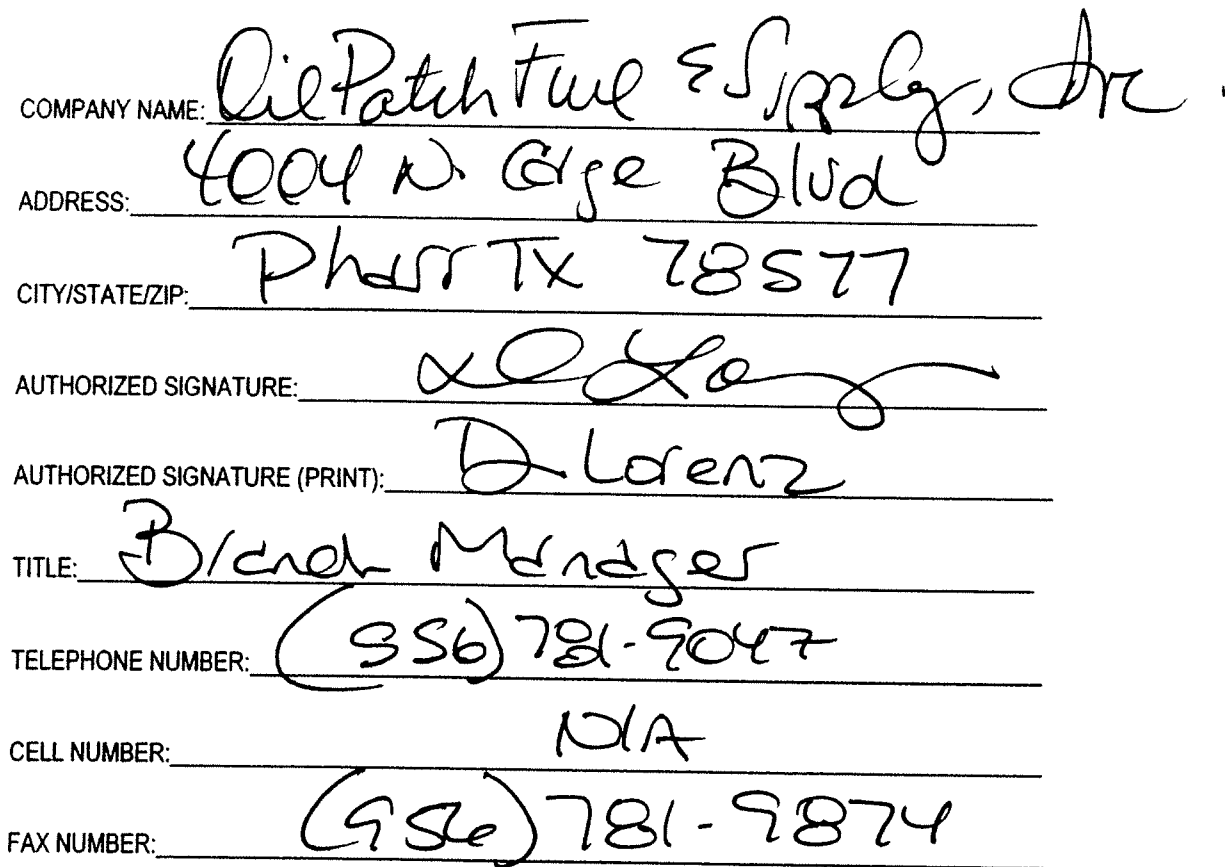 COMPANY NAME: Oil Patch Fuel & Supply, Inc.
ADDRESS: 4004 N. Cage Blvd
CITY/STATE/ZIP: Pharr TX 78577
AUTHORIZED SIGNATURE:
AUTHORIZED SIGNATURE (PRINT): D Lorenz
TITLE: Branch Manager
TELEPHONE NUMBER: (956) 781-9047
CELL NUMBER: N/A
FAX NUMBER: (956) 781-9874